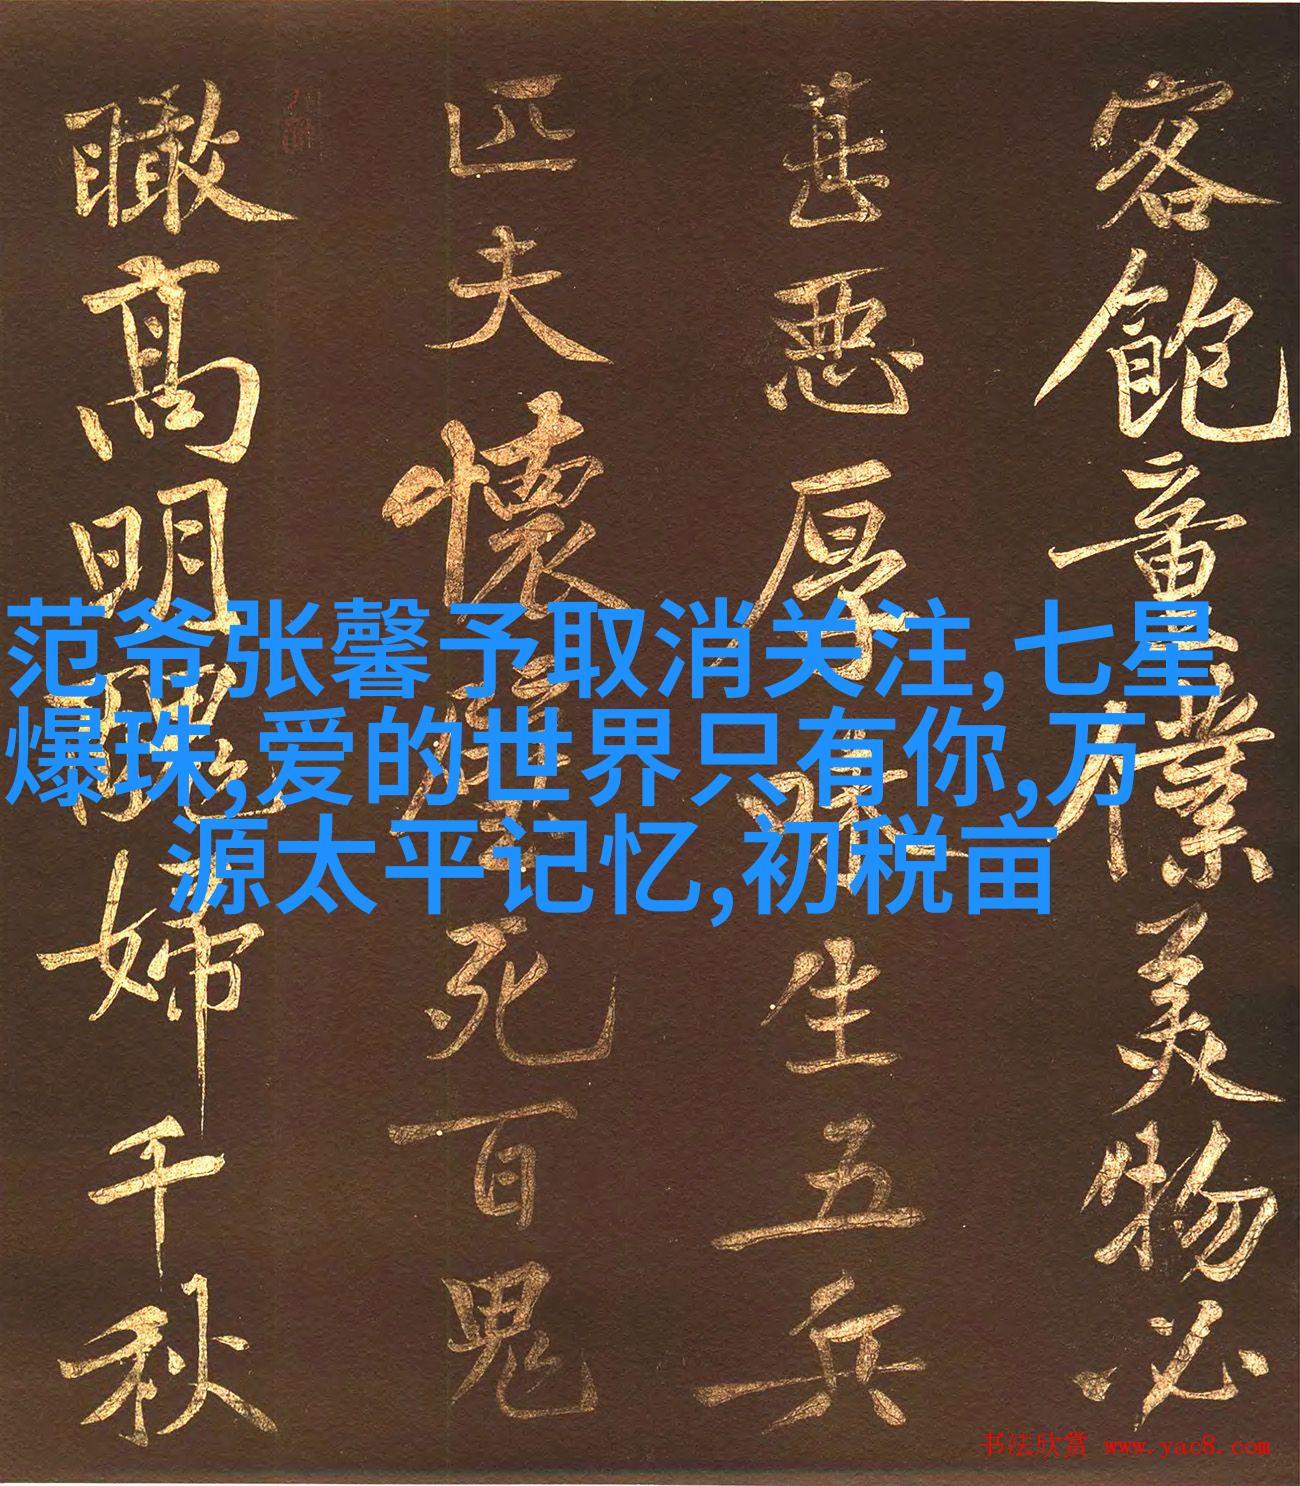 客飽童僕美物必
甚惡厚味生五兵
匹夫懷璧死百鬼
瞰高明醜婦千秋
范爷张馨予取消关注,七星
爆珠,爱的世界只有你,万
源太平记忆,初税亩
书法欣赏 www.yac8.com